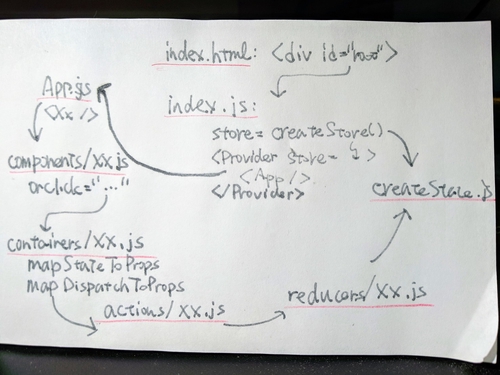 index.html: <div id="root">
App.js
<Xx />
index.js:
store = createStore()
<Provider store = >
<App />
</Provider>
components/xx.js
onclick="..."
createState.js
containers/XX.js
mapStateToProps
mapDispatchToProps
actions/Xx.js
reducers/XX.js